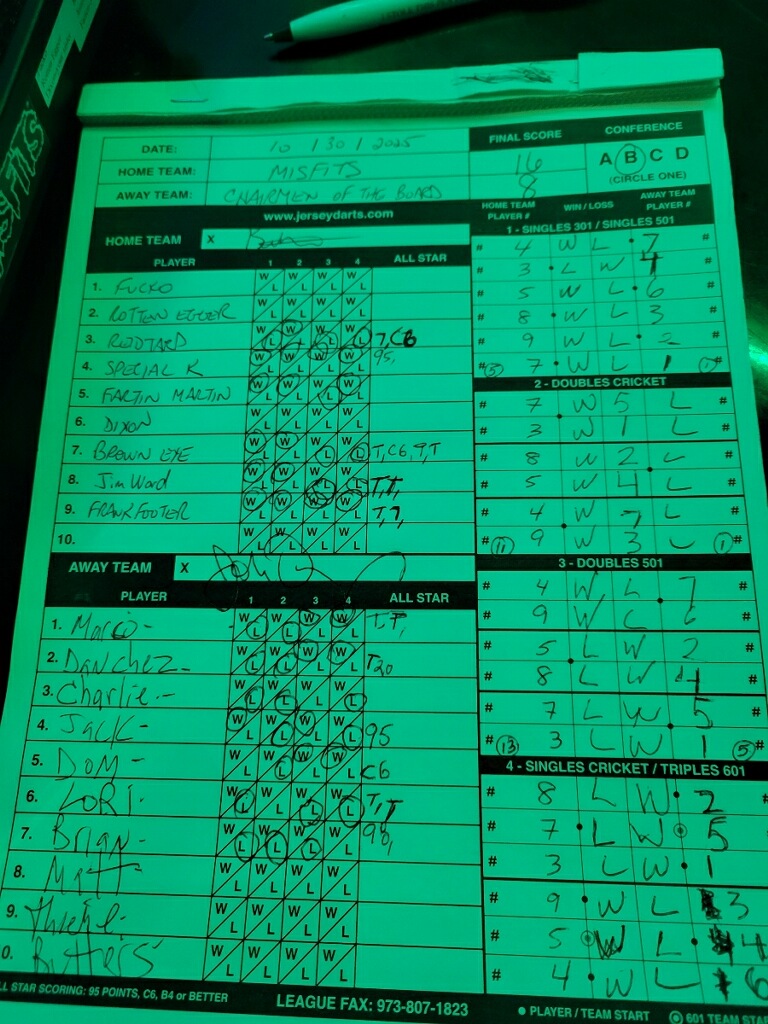 DATE: 10 / 30 / 2025
HOME TEAM: MISFITS
AWAY TEAM: CHAIRMEN OF THE BOARD
FINAL SCORE
16
8
CONFERENCE
A B C D
(CIRCLE ONE)
www.jerseydarts.com
HOME TEAM X
PLAYER 1 2 3 4 ALL STAR
1. FUCKO W L W L W L W L
2. ROTTEN EGGER W L W L W L W L
3. RODTARD W L W L W L W L 7, C6
4. SPECIAL K W L W L W L W L 95,
5. FARTIN MARTIN W L W L W L W L
6. DIXON W L W L W L W L
7. BROWN EYE W L W L W L W L T, C6, 9, T
8. Jim Ward W L W L W L W L T, T,
9. FRANK FOOTER W L W L W L W L T, 7,
10. W L W L W L W L
AWAY TEAM X
PLAYER 1 2 3 4 ALL STAR
1. Marco- W L W L W L W L T, T,
2. Danchez- W L W L W L W L T20
3. Charlie- W L W L W L W L
4. JACK- W L W L W L W L 95
5. DOM- W L W L W L W L C6
6. LORI- W L W L W L W L T, T
7. Brian- W L W L W L W L 98,
8. Matt W L W L W L W L
9. W L W L W L W L
0. Butters W L W L W L W L
ALL STAR SCORING: 95 POINTS, C6, B4 or BETTER
LEAGUE FAX: 973-807-1823
HOME TEAM PLAYER # WIN / LOSS AWAY TEAM PLAYER #
1 - SINGLES 301 / SINGLES 501
# 4 W L 7 #
# 3 L W 4
# 5 W L 6
# 8 W L 3
# 9 W L 2
# 5 7 W L 1 1 #
2 - DOUBLES CRICKET
# 7 W 5 L #
# 3 W 1 L
# 8 W 2 L
# 5 W 4 L
# 4 W 7 L
# 11 9 W 3 L 1 #
3 - DOUBLES 501
# 4 W L 7 #
# 9 W L 6
# 5 L W 2
# 8 L W 4
# 7 L W 5
# 13 3 L W 1 5 #
4 - SINGLES CRICKET / TRIPLES 601
# 8 L W 2 #
# 7 L W 5 #
# 3 L W 1 #
# 9 W L 3 #
# 5 W L 4 #
# 4 W L 6 #
PLAYER / TEAM START 601 TEAM STAR